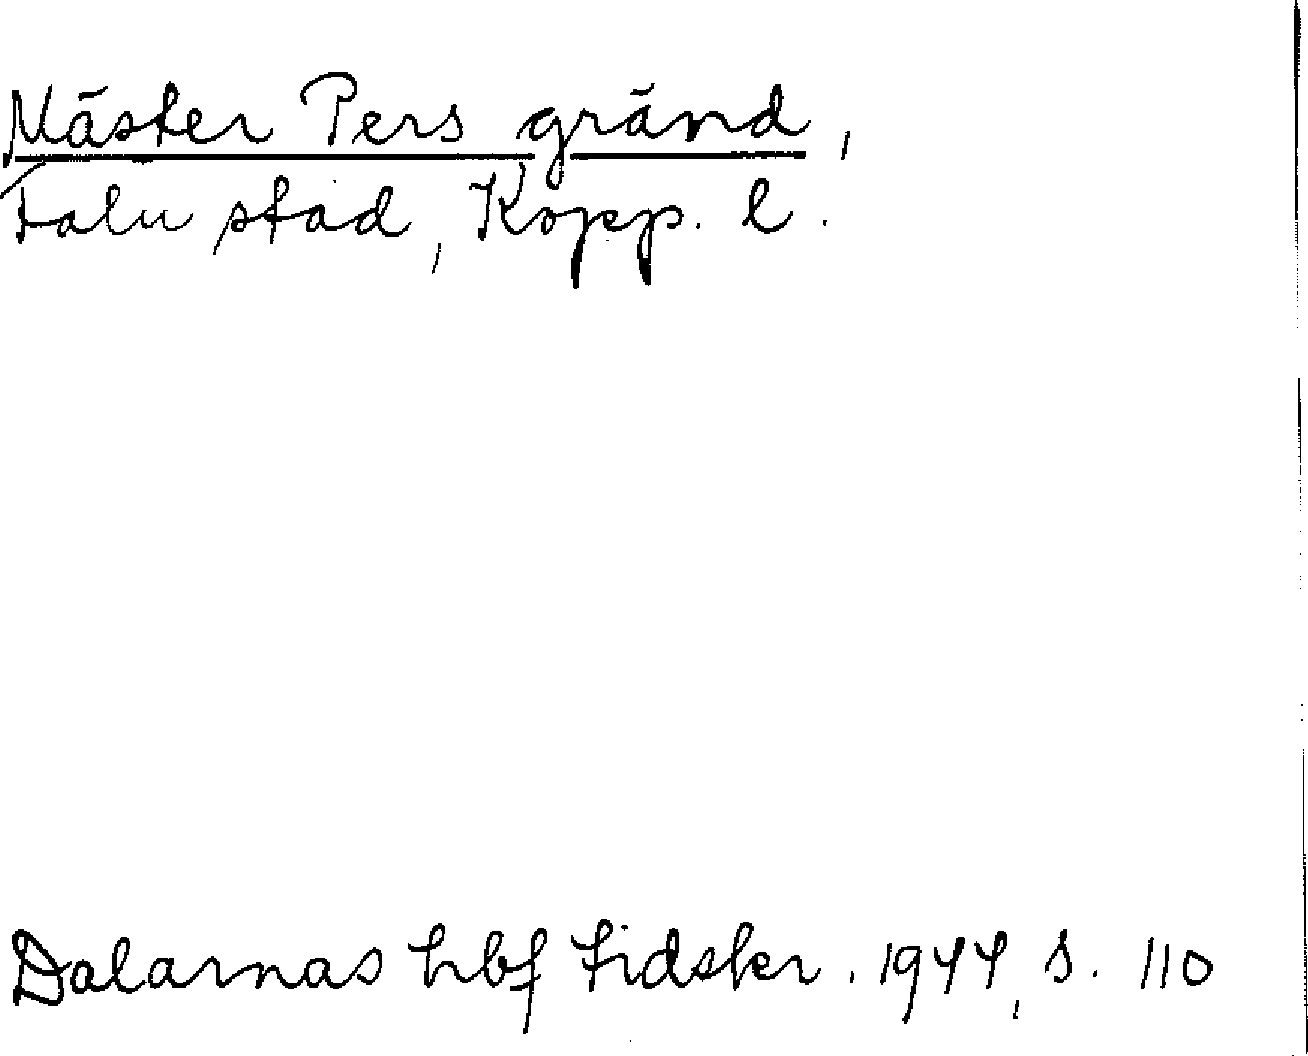 Mäster Pers gränd,
Falu stad, Kopp. l.
Dalarnas hbf tidskr. 1944, s. 110